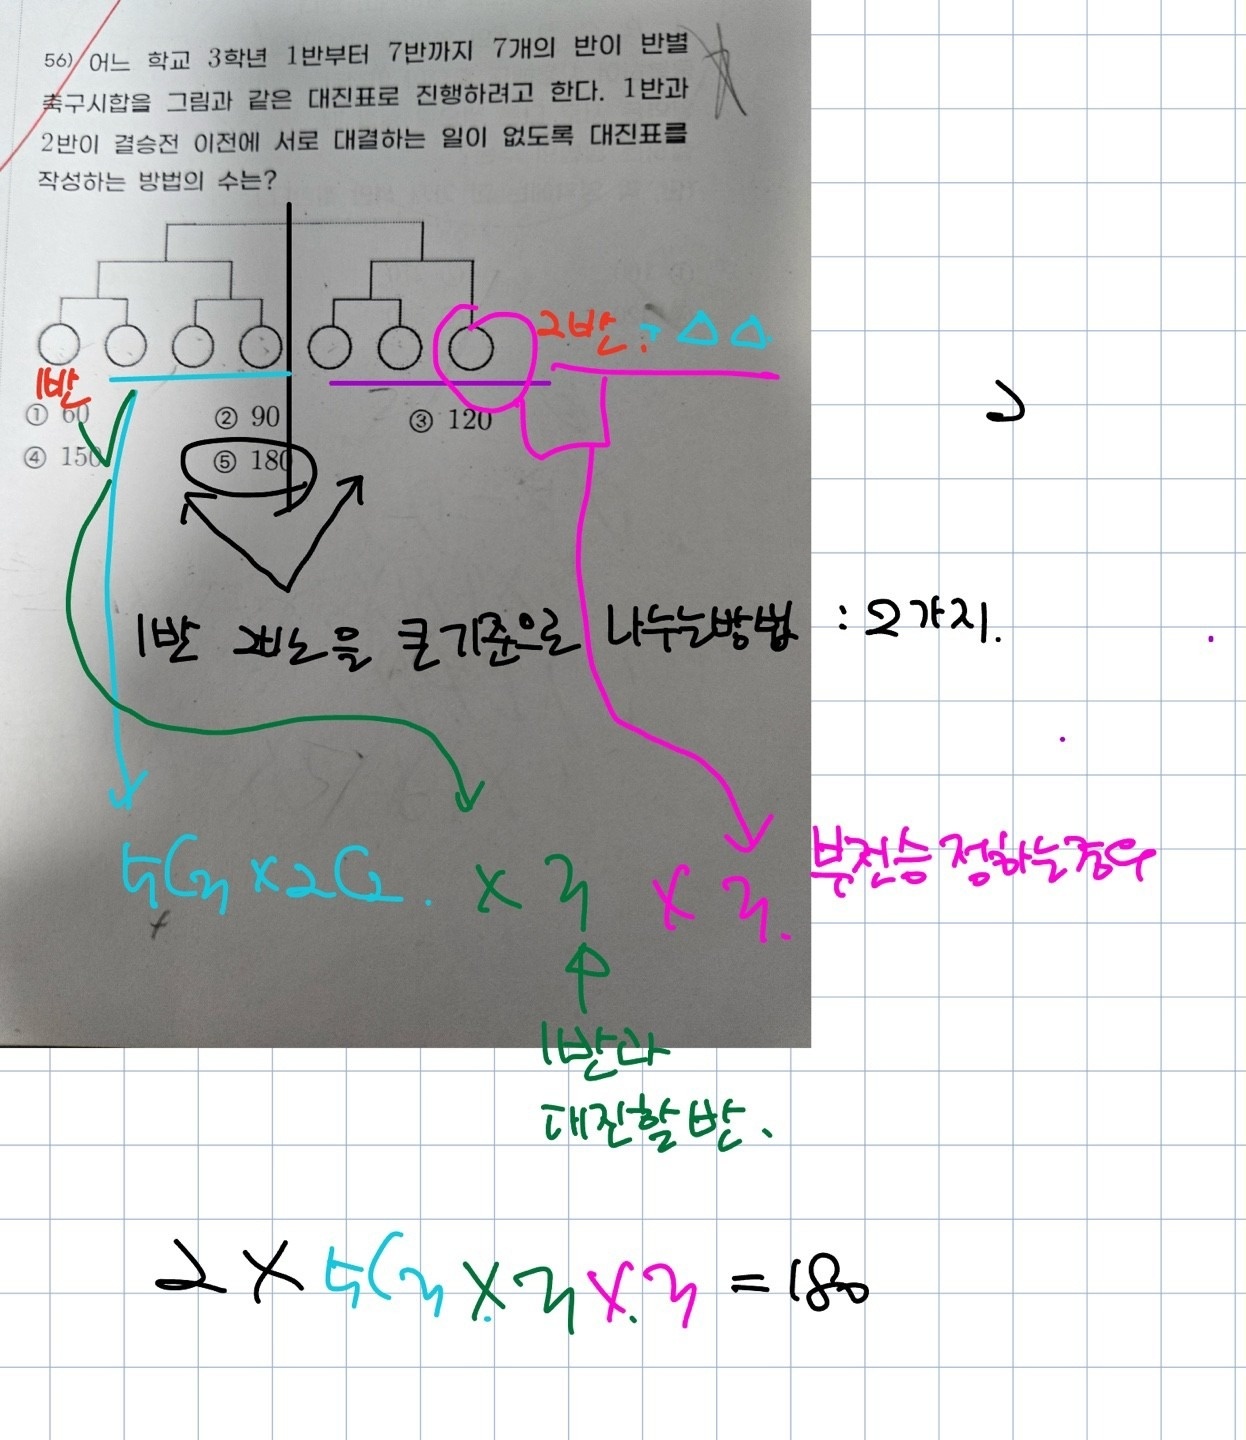 56) 어느 학교 3학년 1반부터 7반까지 7개의 반이 반별
축구시합을 그림과 같은 대진표로 진행하려고 한다. 1반과
2반이 결승전 이전에 서로 대결하는 일이 없도록 대진표를
작성하는 방법의 수는?
2반 + △△
1반
① 60 ② 90 ③ 120
④ 150 ⑤ 180
1반 2반을 큰기준으로 나누는방법 : 2가지.
부전승 정하는경우
5C3 × 2C2. × 3 × 3.
1반과
대진할 반.
2 × 5C3 × 3 × 3 = 180